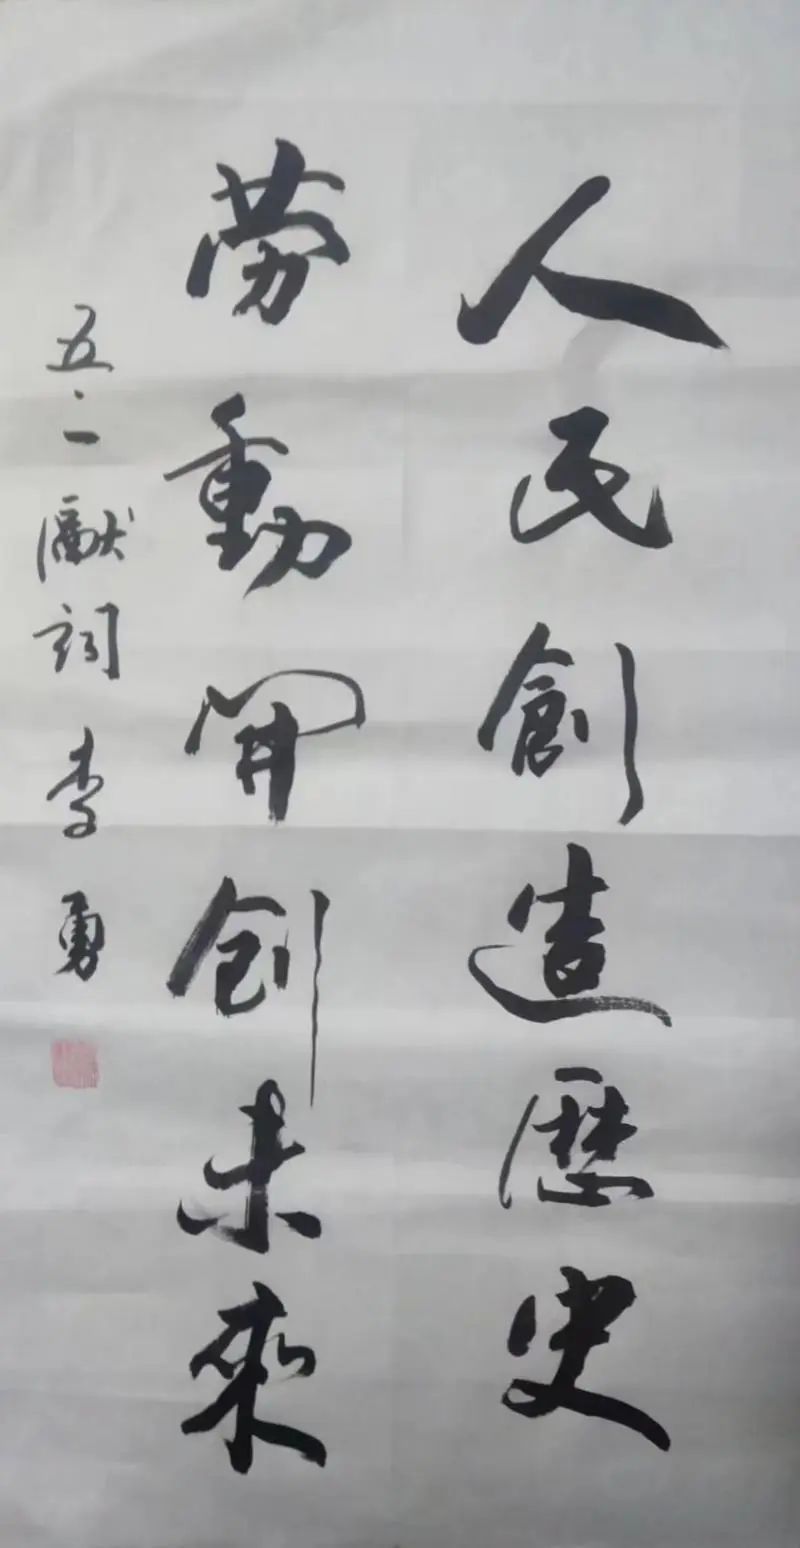 人民創造歷史
勞動開創未來
五一獻詞 李勇